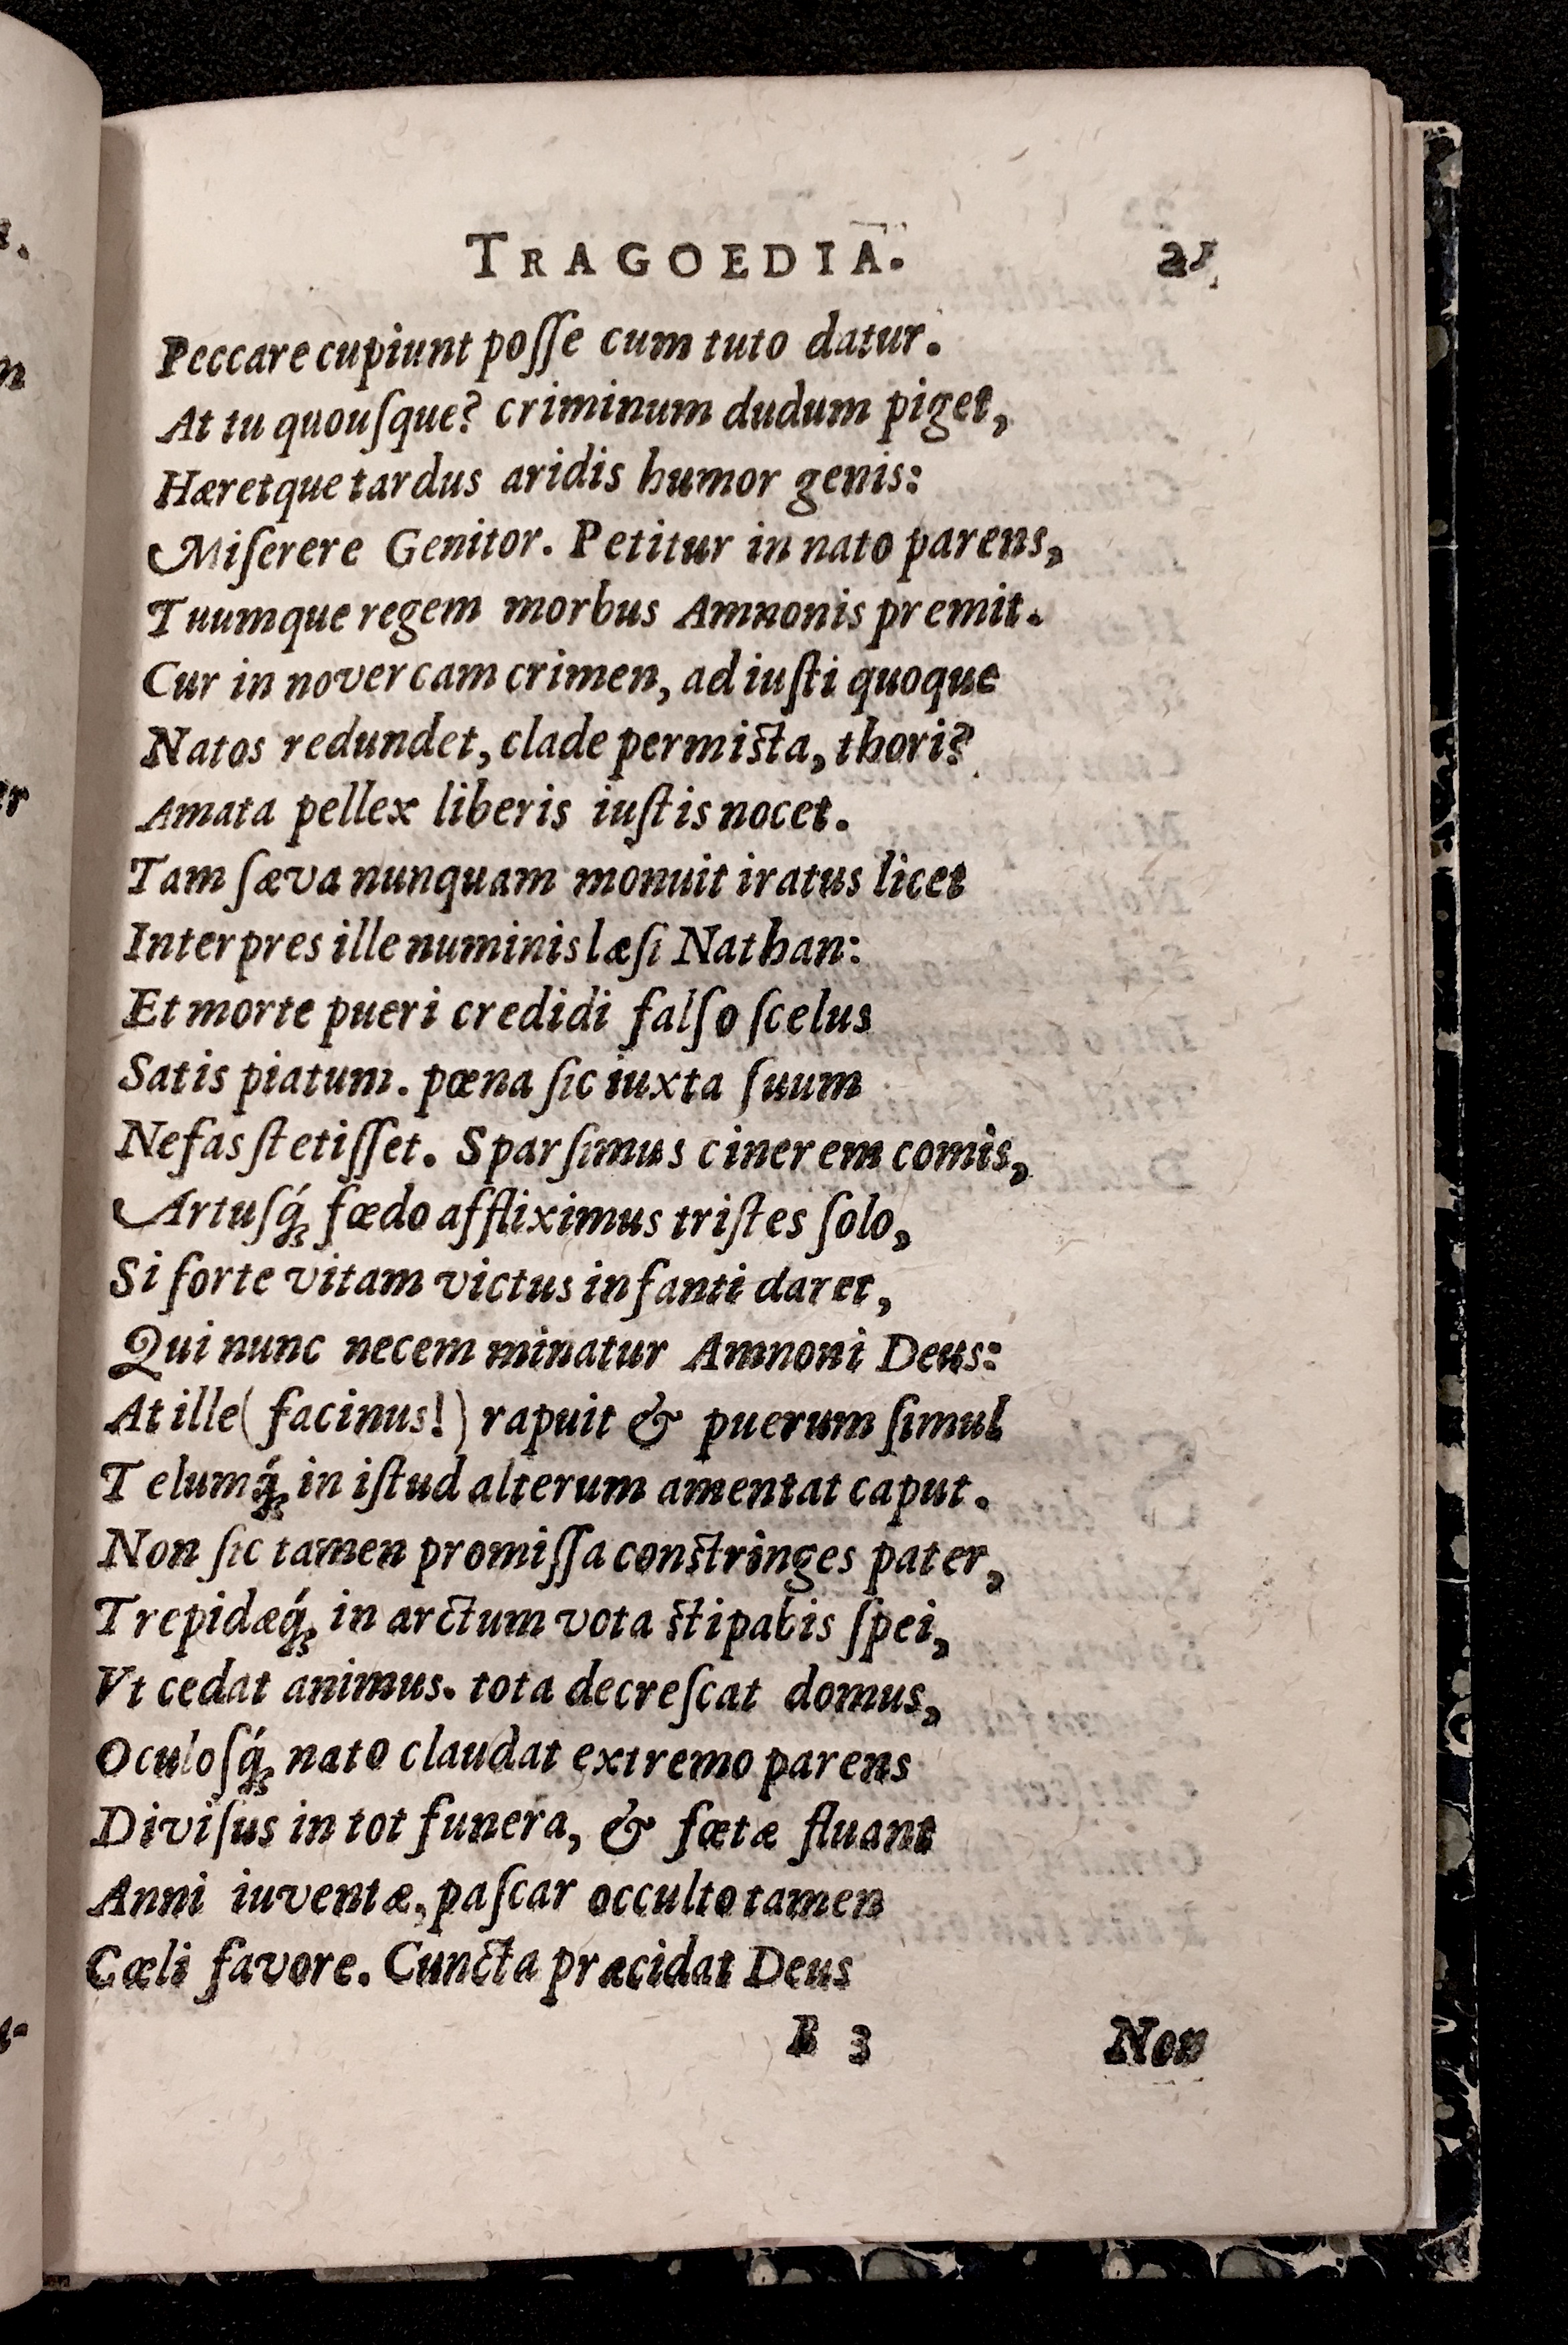 TRAGOEDIA. 21
Peccare cupiunt poſſe cum tuto datur.
At tu quouſque? criminum dudum piget,
Hæretque tardus aridis humor genis:
Miſerere Genitor. Petitur in nato parens,
Tuumque regem morbus Amnonis premit.
Cur in novercam crimen, ad iuſti quoque
Natos redundet, clade permiſta, thori?
Amata pellex liberis iuſtis nocet.
Tam ſæva nunquam monuit iratus licet
Interpres ille numinis læſi Nathan:
Et morte pueri credidi falſo ſcelus
Satis piatum. pœna ſic iuxta ſuum
Nefas ſtetiſſet. Sparſimus cinerem comis,
Artuſq́ꝫ fœdo affliximus triſtes ſolo,
Si forte vitam victus infanti daret,
Qui nunc necem minatur Amnoni Deus:
At ille (facinus!) rapuit & puerum ſimul
Telumq́ꝫ in iſtud alterum amentat caput.
Non ſic tamen promiſſa conſtringes pater,
Trepidæq́ꝫ in arctum vota ſtipabis ſpei,
Vt cedat animus. tota decreſcat domus,
Oculoſq́ꝫ nato claudat extremo parens
Diviſus in tot funera, & fœtæ fluant
Anni iuventæ, paſcar occulto tamen
Cœli favore. Cuncta præcidat Deus
B 3 Non